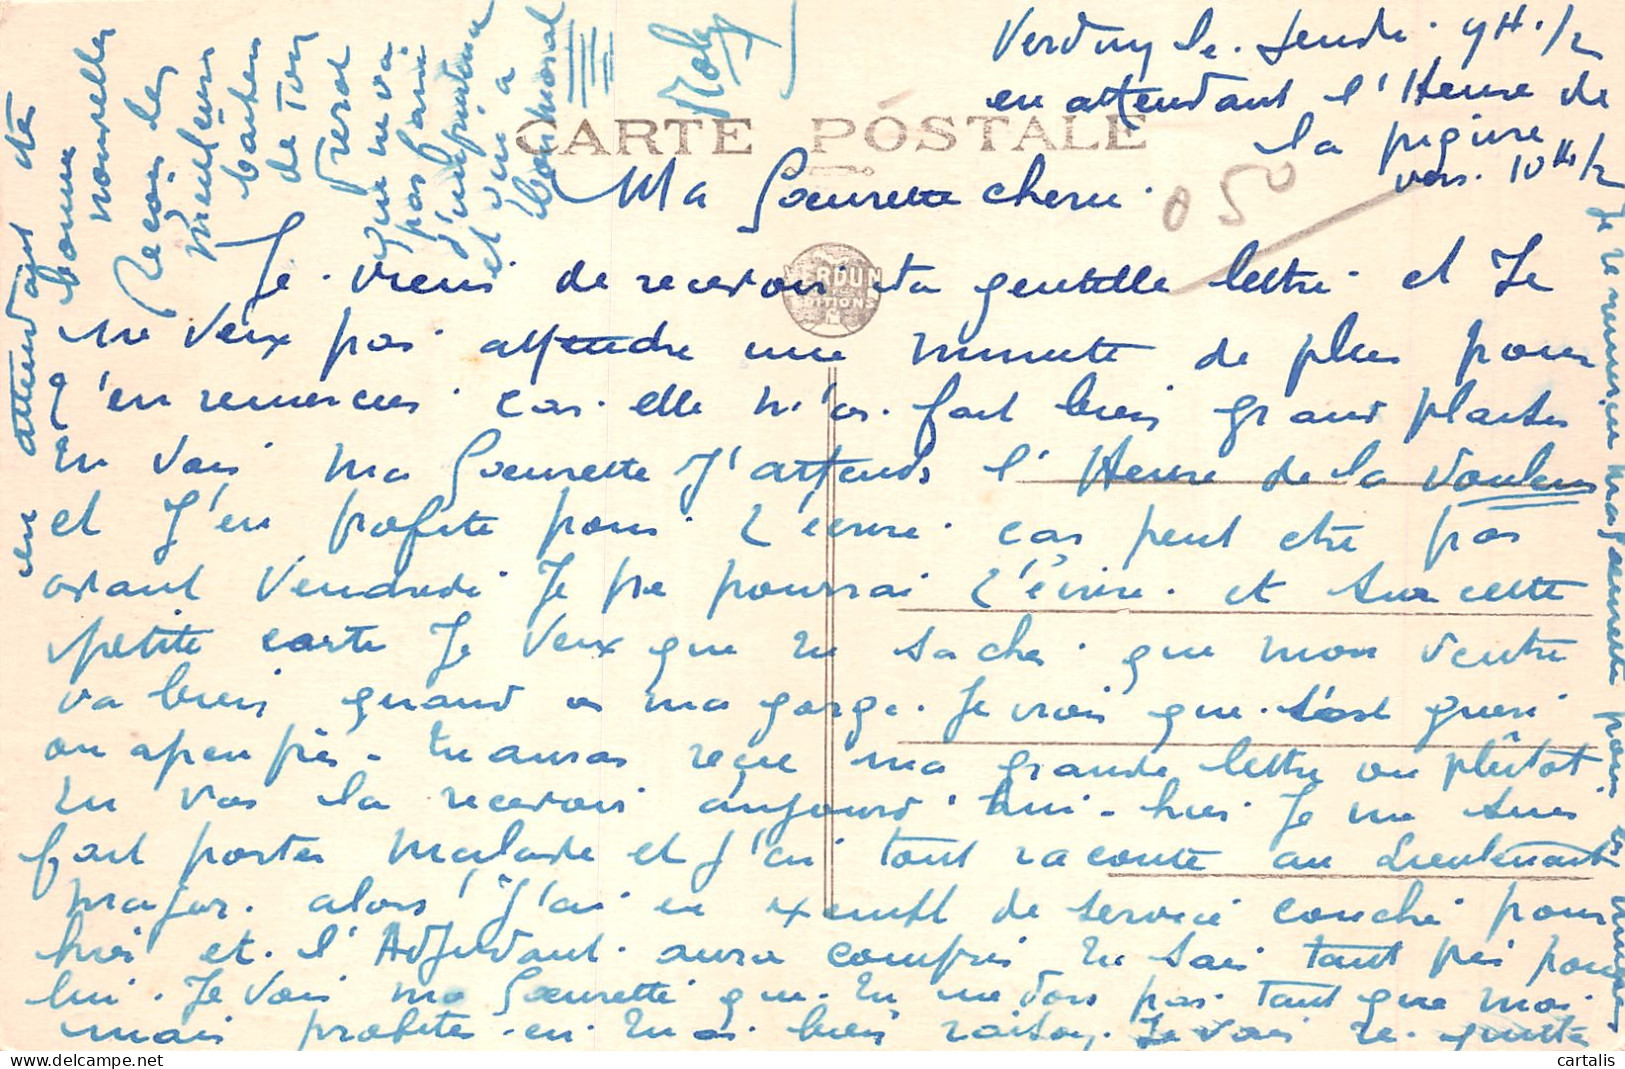 Verdun le Jeudi 9H.1/2
en attendant l'Heure de
la piqure
vers 10H1/2
CARTE POSTALE
Ma Soeurette cherie
050
VERDUN
EDITIONS
Je viens de recevoir ta gentille lettre et Je
ne veux pas attendre une minute de plus pour
t'en remercier car elle m'a fait bien grand plaisir
Tu vois ma Soeurette J'attends l'Heure de la douleur
et J'en profite pour t'écrire car peut etre pas
avant Vendredi Je ne pourrai t'écrire et sur cette
petite carte Je veux que tu sache que mon ventre
va bien quand a ma gorge Je crois que c'est gueri
ou a peu près - tu auras reçue ma grande lettre ou plûtot
tu vas la recevoir aujourd'hui - hier Je me suis
fait porter malade et J'ai tout raconté au Lieutenant
major. alors J'ai eu exempt de service couché pour
hier et l'Adjudant aura compris tu sais tant pis pour
lui. Je vois ma Soeurette que tu me dors pas tant que moi
mais profites-en tu as bien raison. Je vais te quitter
en attendant de
bonne
nouvelles
Reçois les
meilleurs
baisers
de ton
frerot
qui ne va
pas faire
d'imprudence
et on a
bon moral
Je te remercie ma Soeurette pour